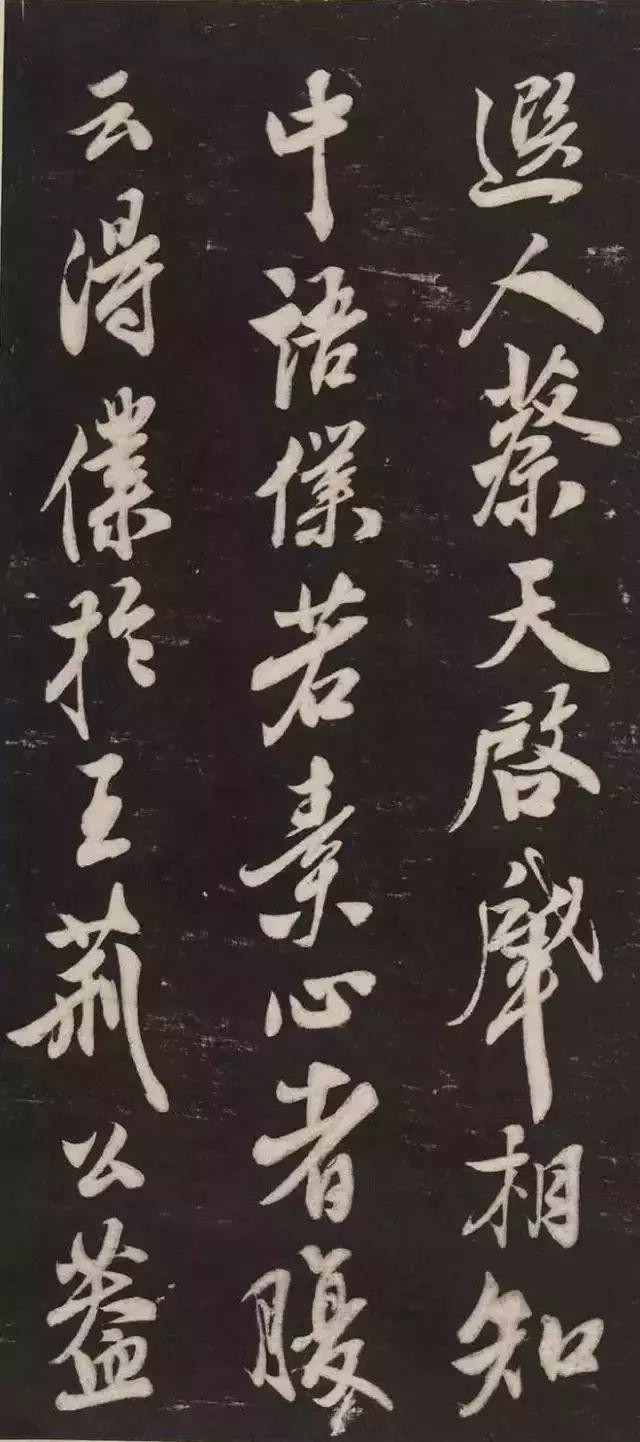 遐人蔡天啓肇相知
中語僕若素心者腹
云得僕於王荊公蓋